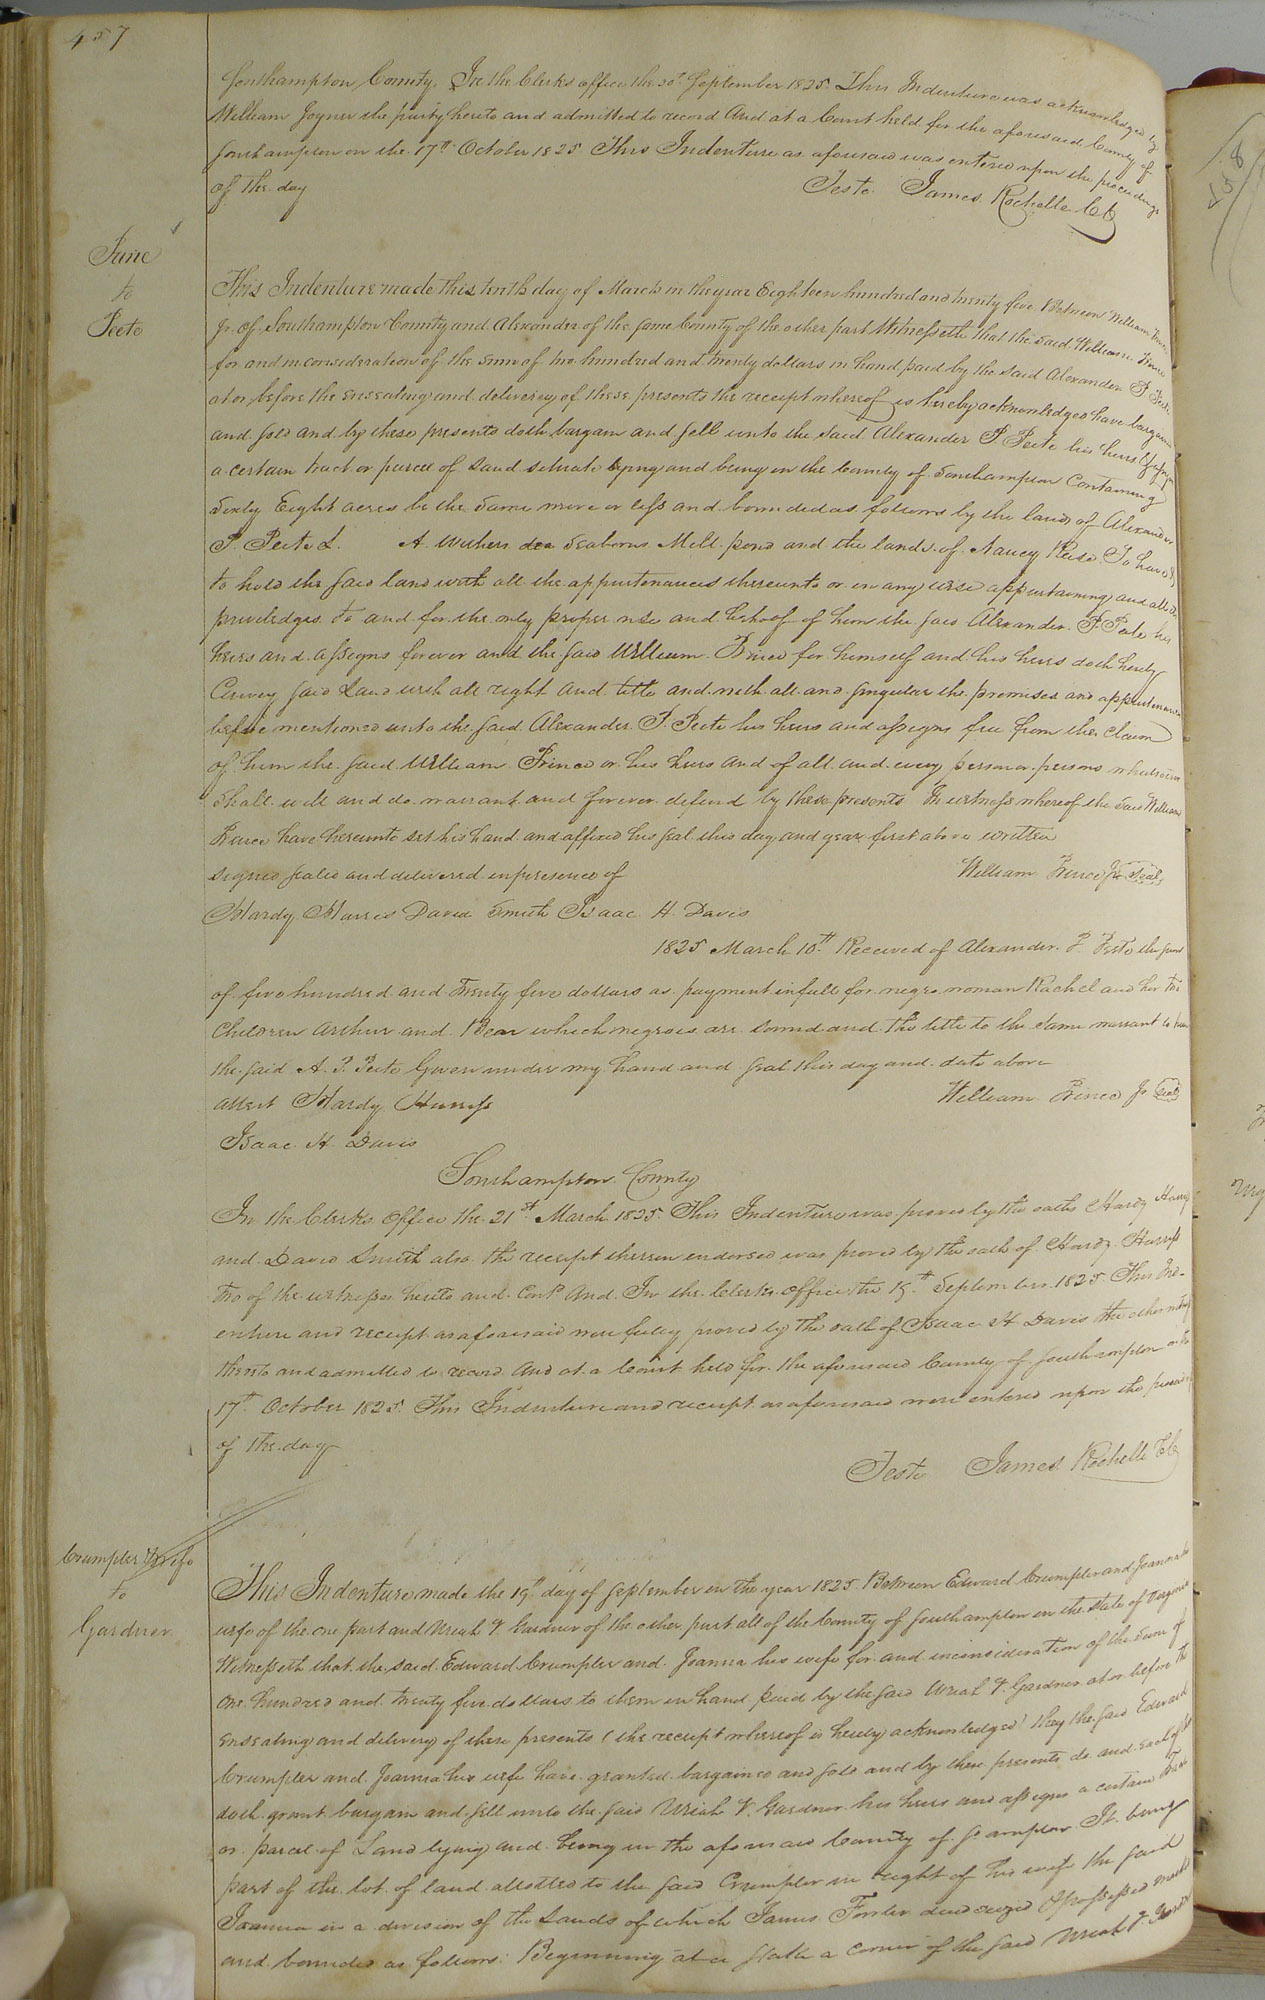 457
Southampton County. In the Clerks office the 30th September 1825. This Indenture was acknowledged by
William Joyner the party hereto and admitted to record And at a Court held for the aforesaid County of
Southampton on the 17th October 1825 This Indenture as aforesaid was entered upon the proceedings
of the day
Teste James Rochelle CC
to
Peete
This Indenture made this tenth day of March in the year Eighteen hundred and twenty five Between William
Jr. of Southampton County and Alexander of the same County of the other part Witnesseth that the said William
for and in consideration of the sum of two hundred and twenty dollars in hand paid by the said Alexander P. Peete
at or before the ensealing and delivery of these presents the receipt whereof is hereby acknowledged have bargain
and sold and by these presents doth bargain and sell unto the said Alexander P. Peete his heirs &
a certain tract or parcel of Land situate lying and being in the County of Southampton Containing
Sixty Eight acres be the same more or less and bounded as follows by the lands of Alexander
P. Peete L. A. Withers Seaborns Mill pond and the lands of Nancy Reese To have &
to hold the said land with all the appurtenances thereunto or in any wise appertaining and all the
priviledges to and for the only proper use and behoof of him the said Alexander P. Peete his
heirs and assigns forever and the said William Prince for himself and his heirs doth hereby
Convey said Land with all right and title and with all and singular the premises and appurtenances
before mentioned unto the said Alexander P. Peete his heirs and assigns free from the Claim
of him the said William Prince or his heirs and of all and every person or persons whatsoever
Shall will and do warrant and forever defend by these presents In witness whereof the said William
Prince have hereunto set his hand and affixed his seal this day and year first above written
signed sealed and delivered in presence of
William Prince Jr Seal
Hardy Harris David Smith Isaac H. Davis
1825 March 10th Received of Alexander P. Peete the sum
of five hundred and Twenty five dollars as payment in full for negro woman Rachel and her two
Children Arthur and Ben which negroes are sound and the title to the same warrant to
the said A. P. Peete Given under my hand and seal this day and date above
attest Hardy Harriss
William Prince Jr Seal
Isaac H Davis
Southampton County
In the Clerks Office the 21st March 1825. This Indenture was proved by the oaths Hardy Harriss
and David Smith also the receipt thereon endorsed was proved by the oath of Hardy Harriss
two of the witnesses hereto and Contd And In the Clerks Office the 19th September 1825 This Ind-
enture and receipt as aforesaid were fully proved by the oath of Isaac H Davis the other witness
thereto and admitted to record And at a Court held for the aforesaid County of Southampton on the
17th October 1825. This Indenture and receipt as aforesaid were entered upon the
of the day
Teste James Rochelle CC
Crumpler & Wife
to
Gardner
This Indenture made the 19th day of September in the year 1825 Between Edward Crumpler and Joanna his
wife of the one part and Uriah V. Gardner of the other part all of the County of Southampton in the State of Virginia
Witnesseth that the said Edward Crumpler and Joanna his wife for and in consideration of the sum of
One hundred and twenty five dollars to them in hand paid by the said Uriah V. Gardner at or before the
ensealing and delivery of these presents (the receipt whereof is hereby acknowledged) they the said Edward
Crumpler and Joanna his wife have granted bargained and sold and by these presents do and each of them
doth grant bargain and sell unto the said Uriah V. Gardner his heirs and assigns a certain tract
or parcel of Land lying and being in the aforesaid County of It being
part of the lot of land allotted to the said Crumpler in right of his wife the said
Joanna in a division of the Lands of which James died seized & possessed
and bounded as follows: Beginning at a stake a corner of the said Uriah V.
458